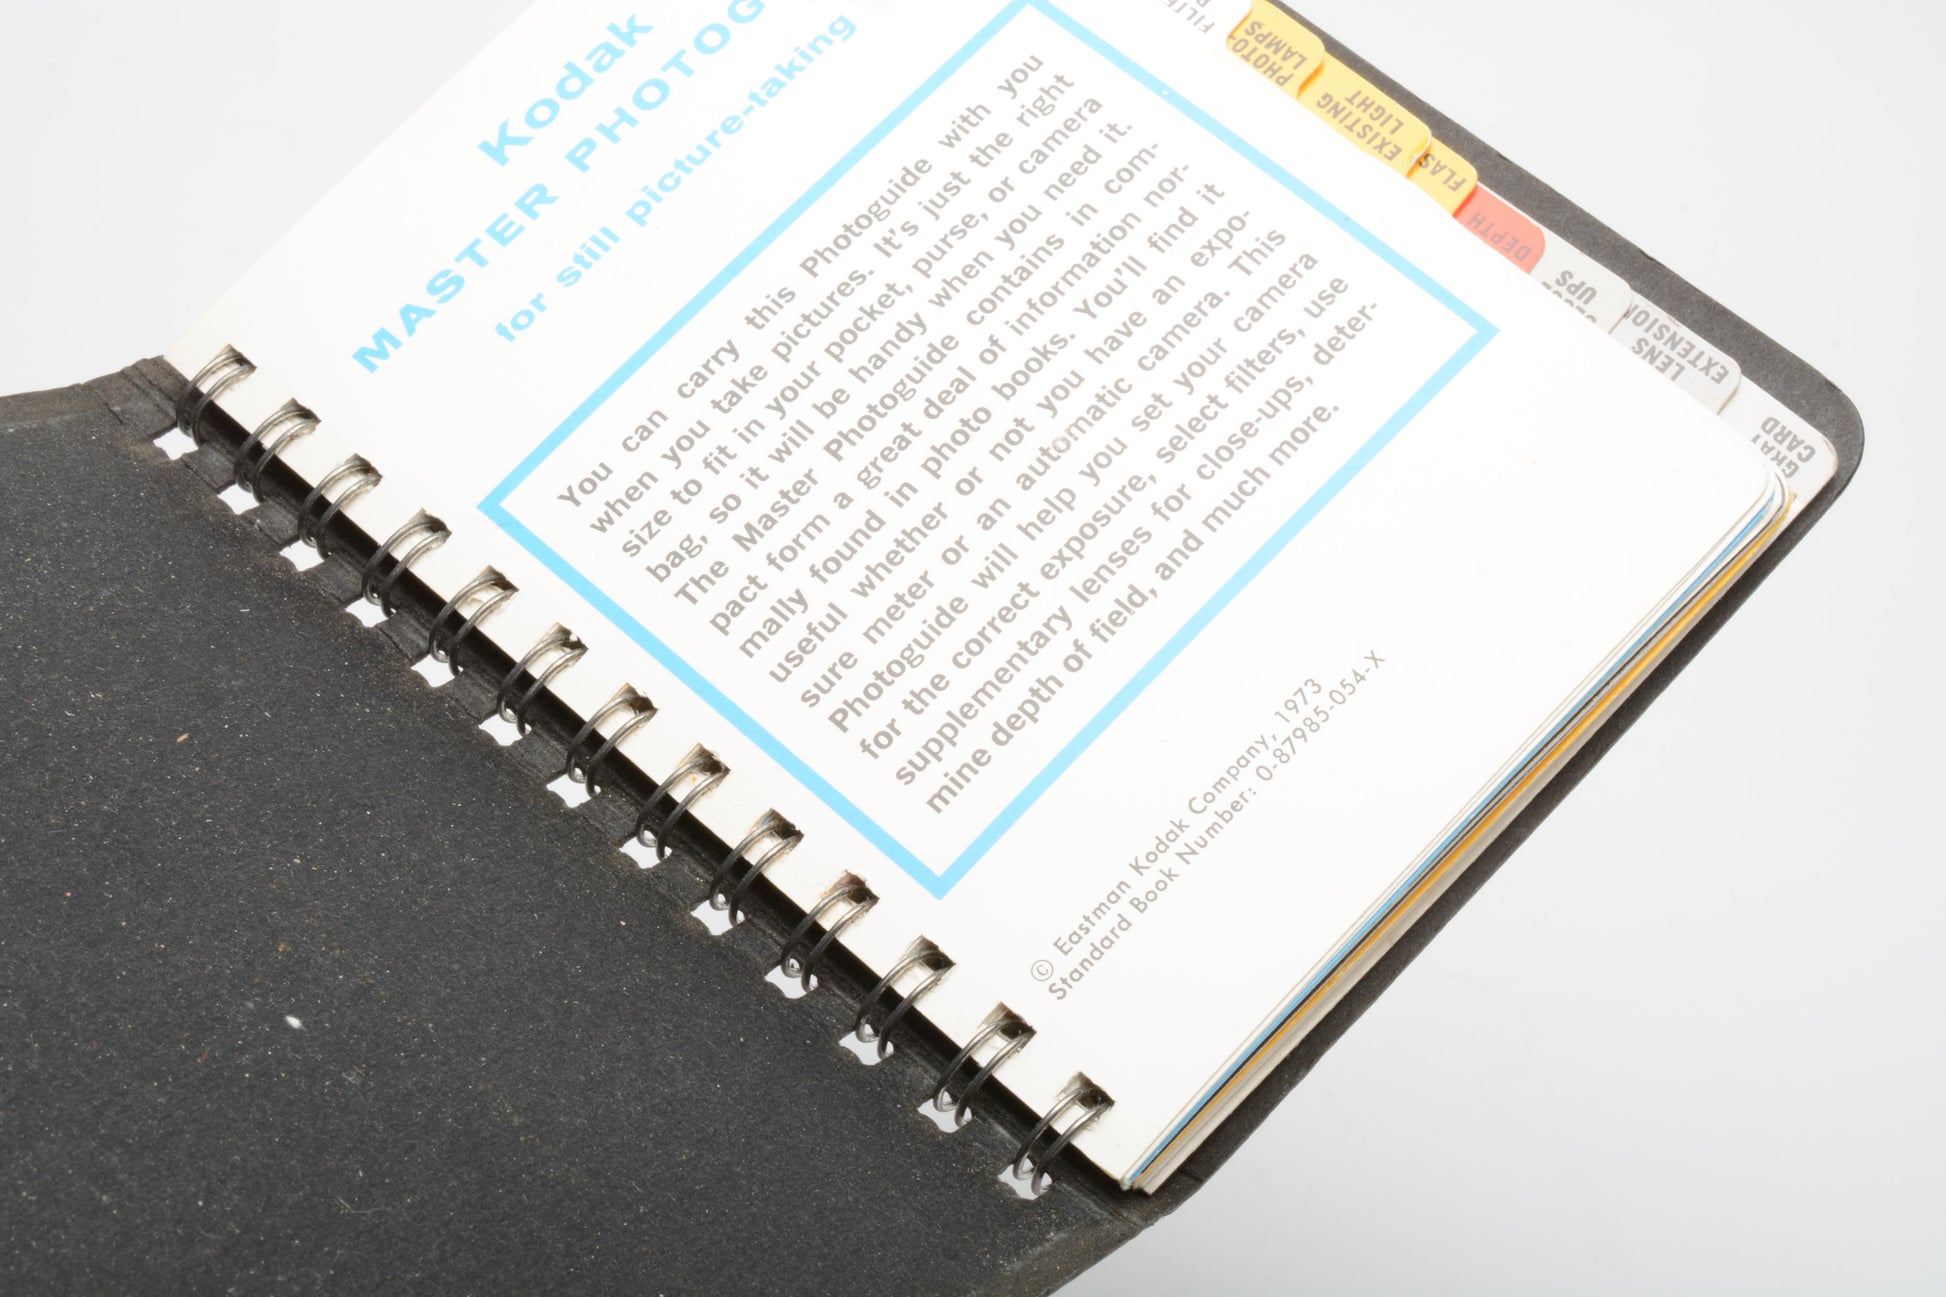 Kodak
MASTER PHOTOG
for still picture-taking
You can carry this Photoguide with you
when you take pictures. It's just the right
size to fit in your pocket, purse, or camera
bag, so it will be handy when you need it.
The Master Photoguide contains in com-
pact form a great deal of information nor-
mally found in photo books. You'll find it
useful whether or not you have an expo-
sure meter or an automatic camera. This
Photoguide will help you set your camera
for the correct exposure, select filters, use
supplementary lenses for close-ups, deter-
mine depth of field, and much more.
© Eastman Kodak Company, 1973
Standard Book Number: 0-87985-054-X
PHOTO-
LAMPS
EXISTING
LIGHT
FLAS
DEPTH
UPS
LENS
EXTENSION
GRAY
CARD